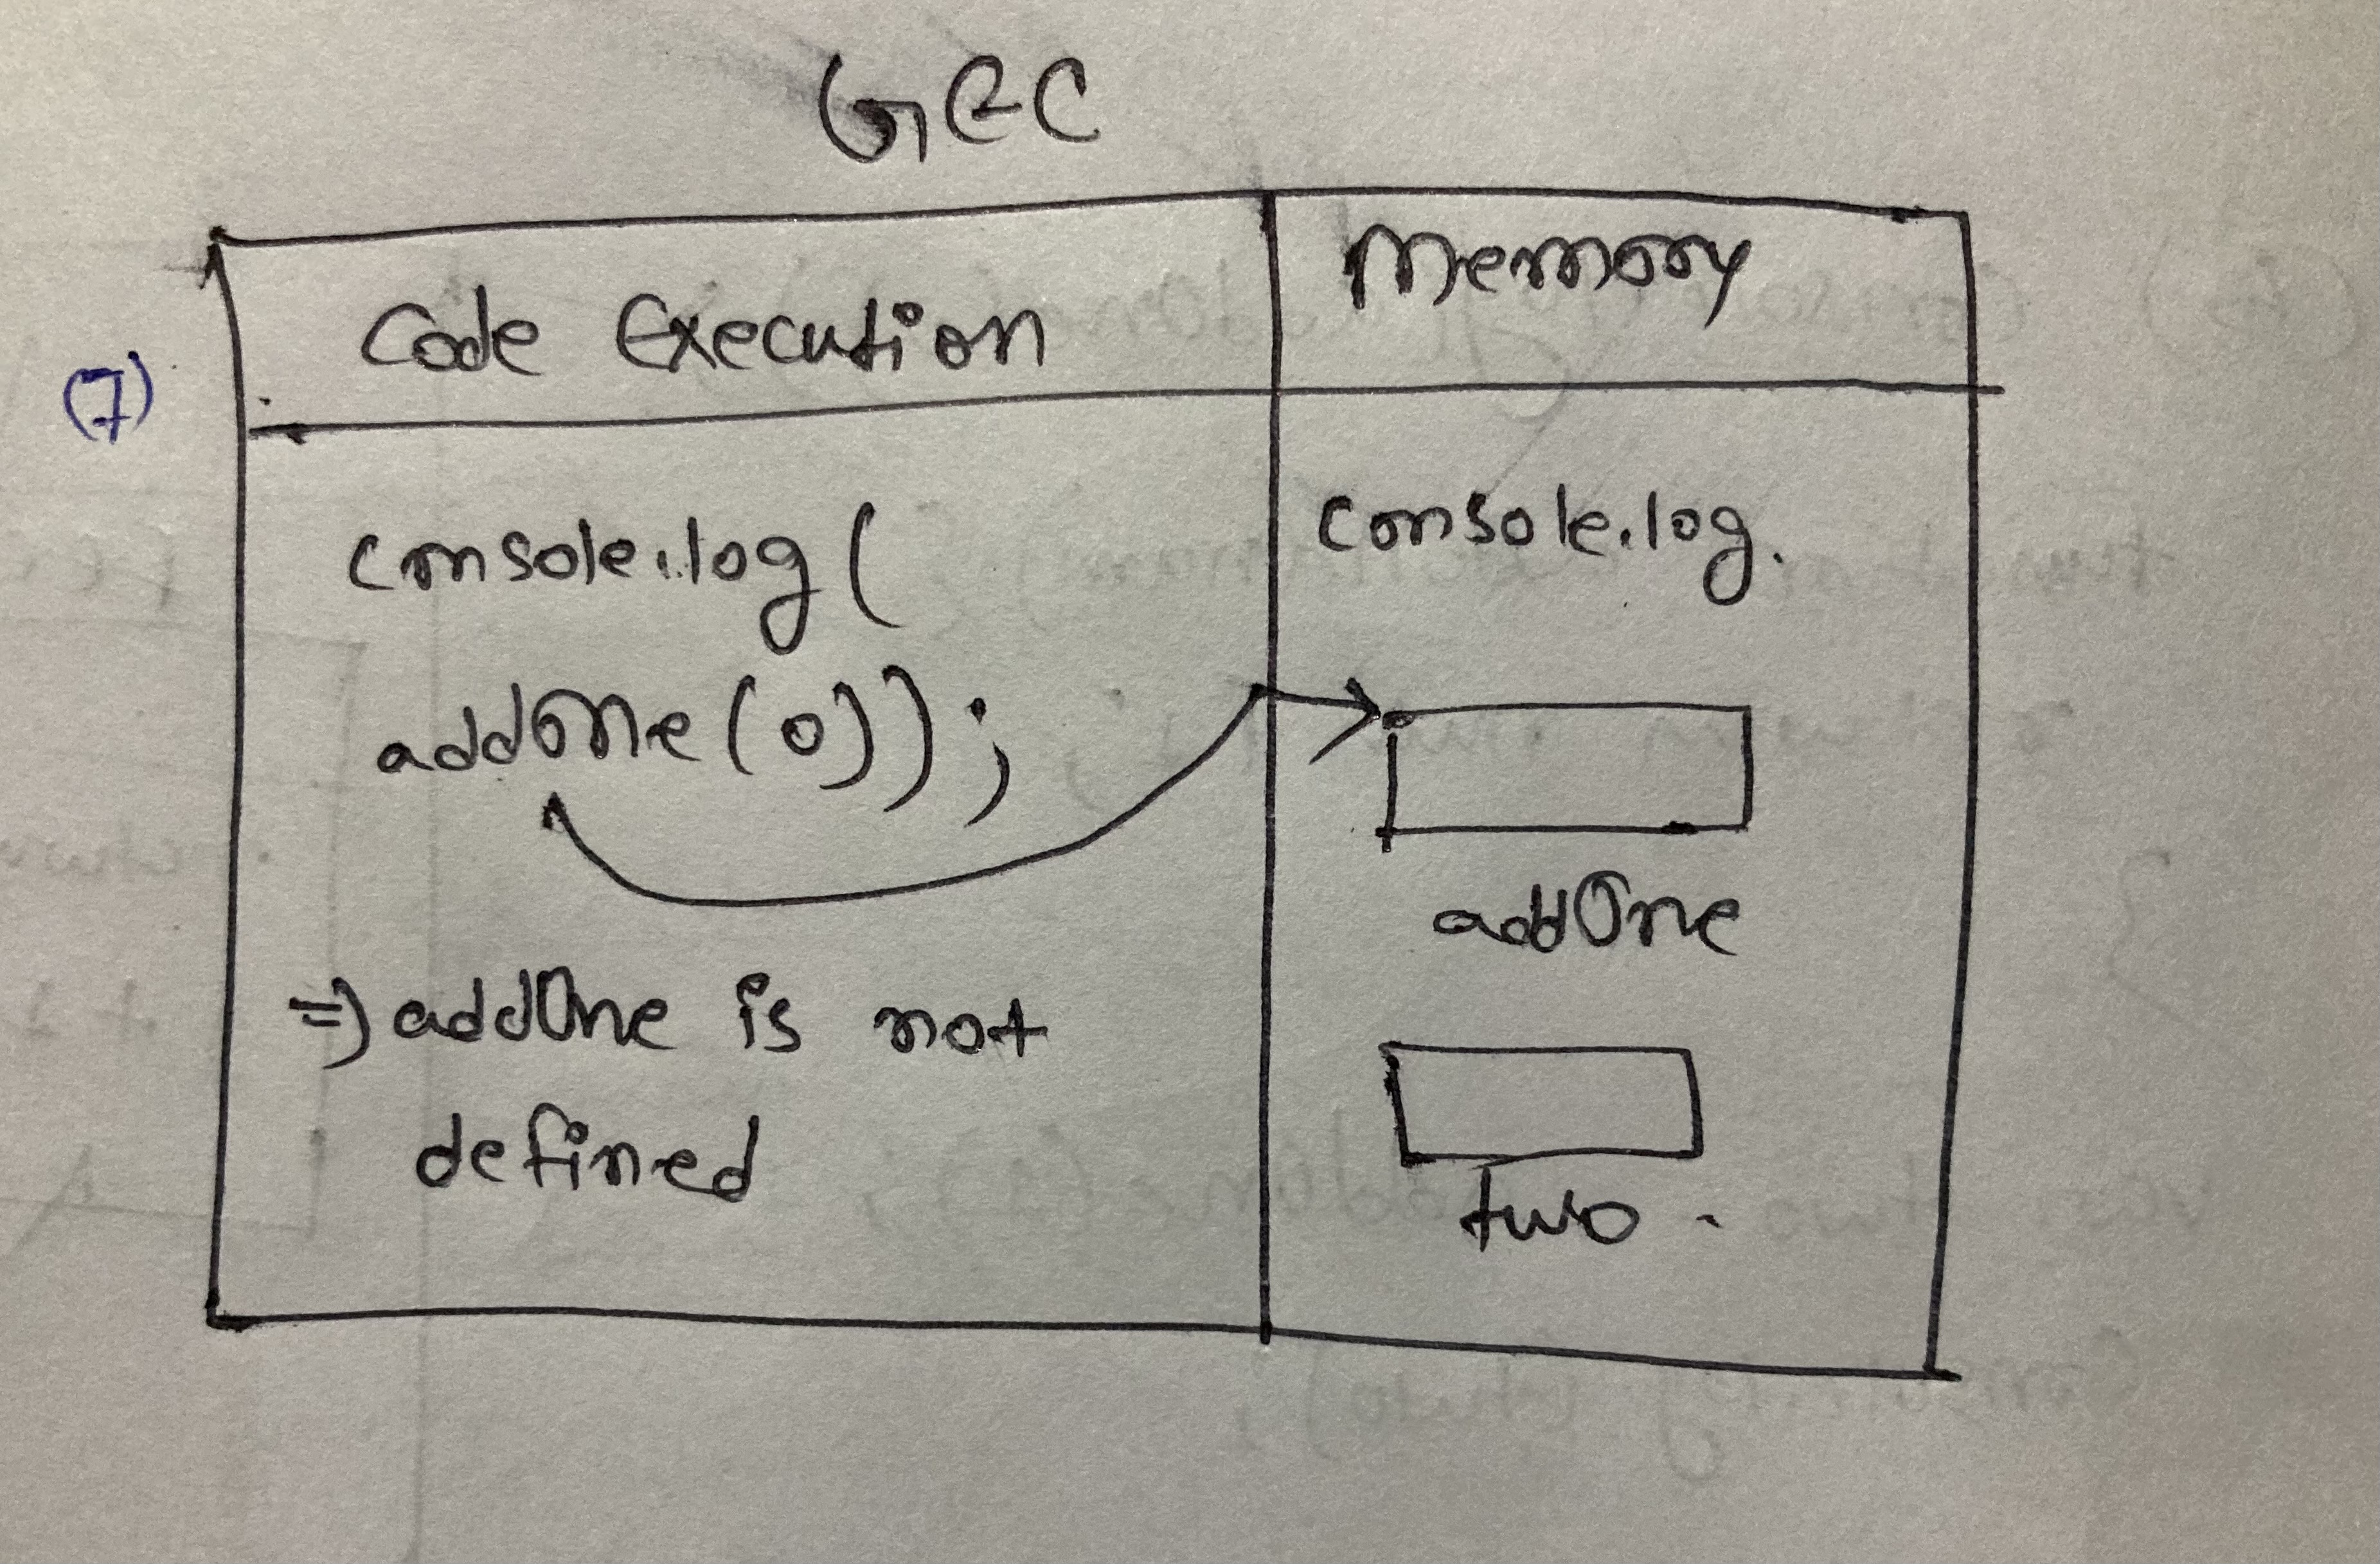 GEC
Code Execution
Memory
(7)
console.log(
addOne(0));
=> addOne is not
defined
console.log.
addOne
two.